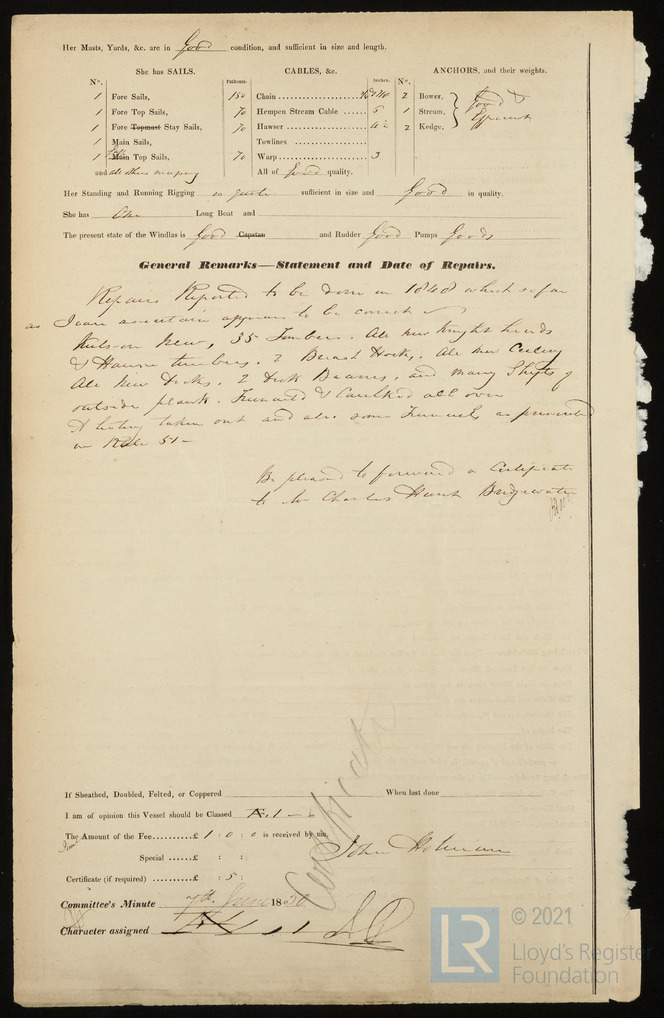 Her Masts, Yards, &c. are in Good condition, and sufficient in size and length.
She has SAILS. CABLES, &c. ANCHORS, and their weights.
No. Fathoms. Inches. No.
1 Fore Sails, 150 Chain 2 Bower, Good &
1 Fore Top Sails, 70 Hempen Stream Cable 6 1 Stream, Efficient
1 Fore Topmast Stay Sails, 70 Hawser 2 Kedge,
1 Main Sails, Towlines
1 Main Top Sails, 70 Warp 3
and others All of good quality.
Her Standing and Running Rigging is quite sufficient in size and good in quality.
She has One Long Boat and
The present state of the Windlas is Good Capstan and Rudder Good Pumps Goods
General Remarks—Statement and Date of Repairs.
Repairs Reported to be done in 1848 which so far
as I can ascertain appears to be correct
new, 35 Timbers. All new Knight heads
& Hawse timbers. 2 Breast Hooks. All new Ceiling
All New Decks. 2 Deck Beams, and many Shifts of
outside plank. & Caulked all over
A listing taken out and also some as prescribed
in Rule 51 —
Be pleased to forward a Certificate
to Mr Charles Hunt Bridgewater
If Sheathed, Doubled, Felted, or Coppered When last done
I am of opinion this Vessel should be Classed
The Amount of the Fee £ 1 : 0 : 0 is received by me,
John Holman
Special £ :
Certificate (if required) : 5 :
Certificate
Committee's Minute 7th June 1850
Character assigned
LR © 2021
Lloyd's Register
Foundation